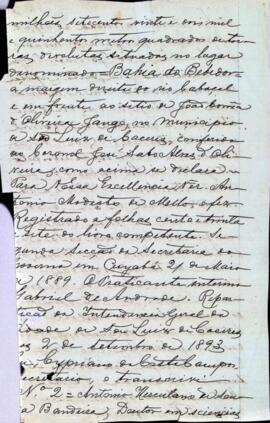 milhões, setecentos vinte e um mil
e quinhentos metros quadrados de ter-
ras devolutas situadas no lugar
denominado - Bahia do Bebedor
a margem direita do rio Cabaçal
e em frente ao sitio de João
Oliveira Gange, no Municipio
de São Luiz de Caceres, conferido
ao Coronel José Alves d'Oli-
veira, como acima se declara.
Para Vossa Excellencia Dr. An-
tonio Modesto de Mello, o fez
Registrado a folhas cento e trinta
sete do livro competente. Se-
gunda secção da Secretaria do
Governo em Cuyabá 21 de Maio
de 1889. O Praticante interino
Gabriel de Andrade. Repar-
tição da Intendencia Geral da
Cidade de São Luiz de Caceres
2 de setembro de 1893
Cypriano da Costa Campos
secretario o transcrivi
Nº 2 = Antonio Herculano de Sou-
za Bandeira, Doutor em sciencias